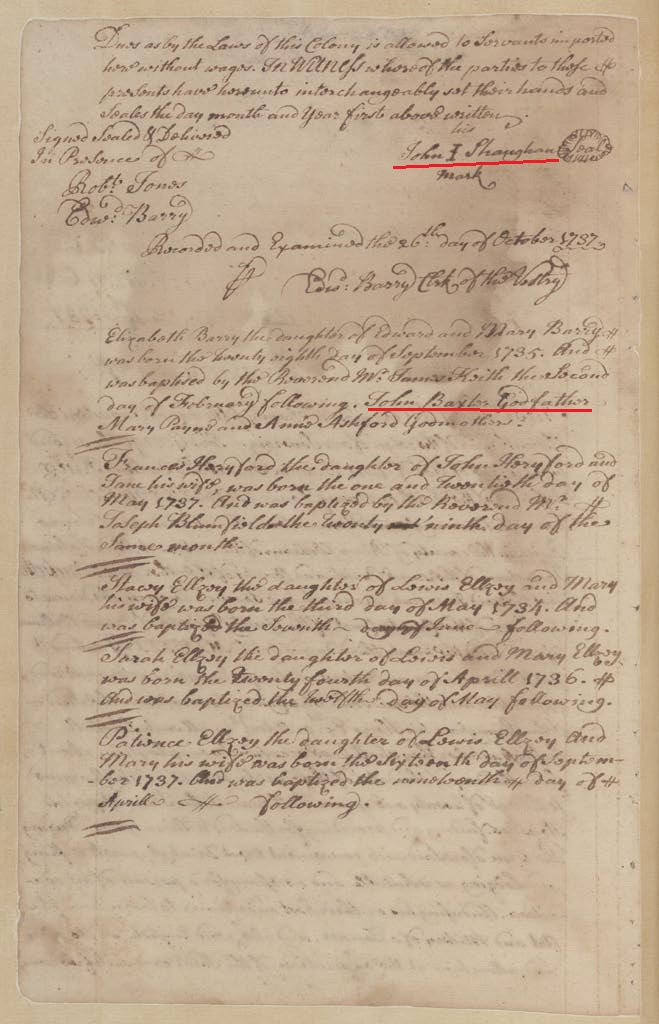 Dues as by the Laws of this Colony is allowed to Servants imported
here without wages. In Witness whereof the parties to these
presents have hereunto interchangeably set their hands and
Seales the day month and Year first above written
his
Signed Sealed & Delivered
In Presence of
John I Shaughan Seal
mark
Robt. Jones
Edwd. Barry
Recorded and Examined the 26th. day of October 1737.
Edwd: Barry Clrk of the Vestry
Elizabeth Barry the daughter of Edward and Mary Barry
was born the twenty eighth Day of September 1735. And
was baptised by the Reverend Mr. James Keith the Second
day of February following. John Baxter Godfather
Mary Payne and Anne Ashford Godmothers.
Frances Heryford the daughter of John Heryford and
Jane his wife, was born the one and twentieth day of
May 1737. And was baptized by the Reverend Mr.
Joseph Blumfield the twenty ninth day of the
Same month.
Stacey Ellzey the daughter of Lewis Ellzey and Mary
his wife was born the third day of May 1734. And
was baptized the Seventh day of June following.
Sarah Ellzey the daughter of Lewis and Mary Ellzey
was born the twenty fourth day of Aprill 1736.
And was baptized the twelfth day of May following.
Patience Ellzey the daughter of Lewis Ellzey And
Mary his wife was born the Sixteenth day of Septem-
-ber 1737. And was baptized the nineteenth day of
Aprill following.